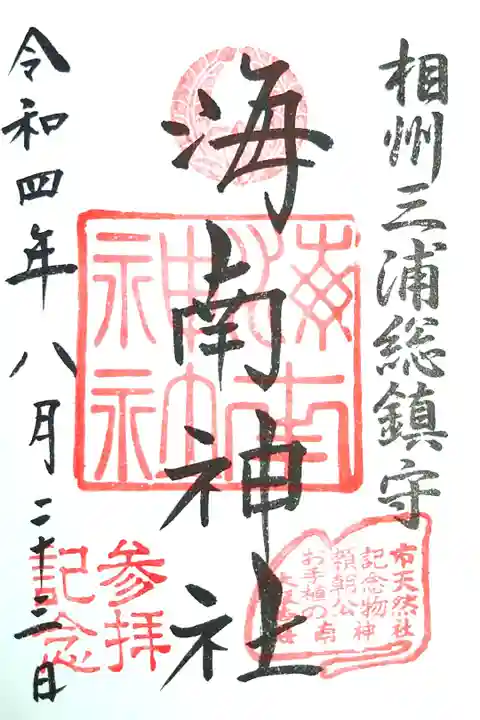 相州三浦総鎮守
海南神社
令和四年八月二十三日
海南神社
参拝
記念
市天然
記念物
頼朝公
お手植の
社
神
南